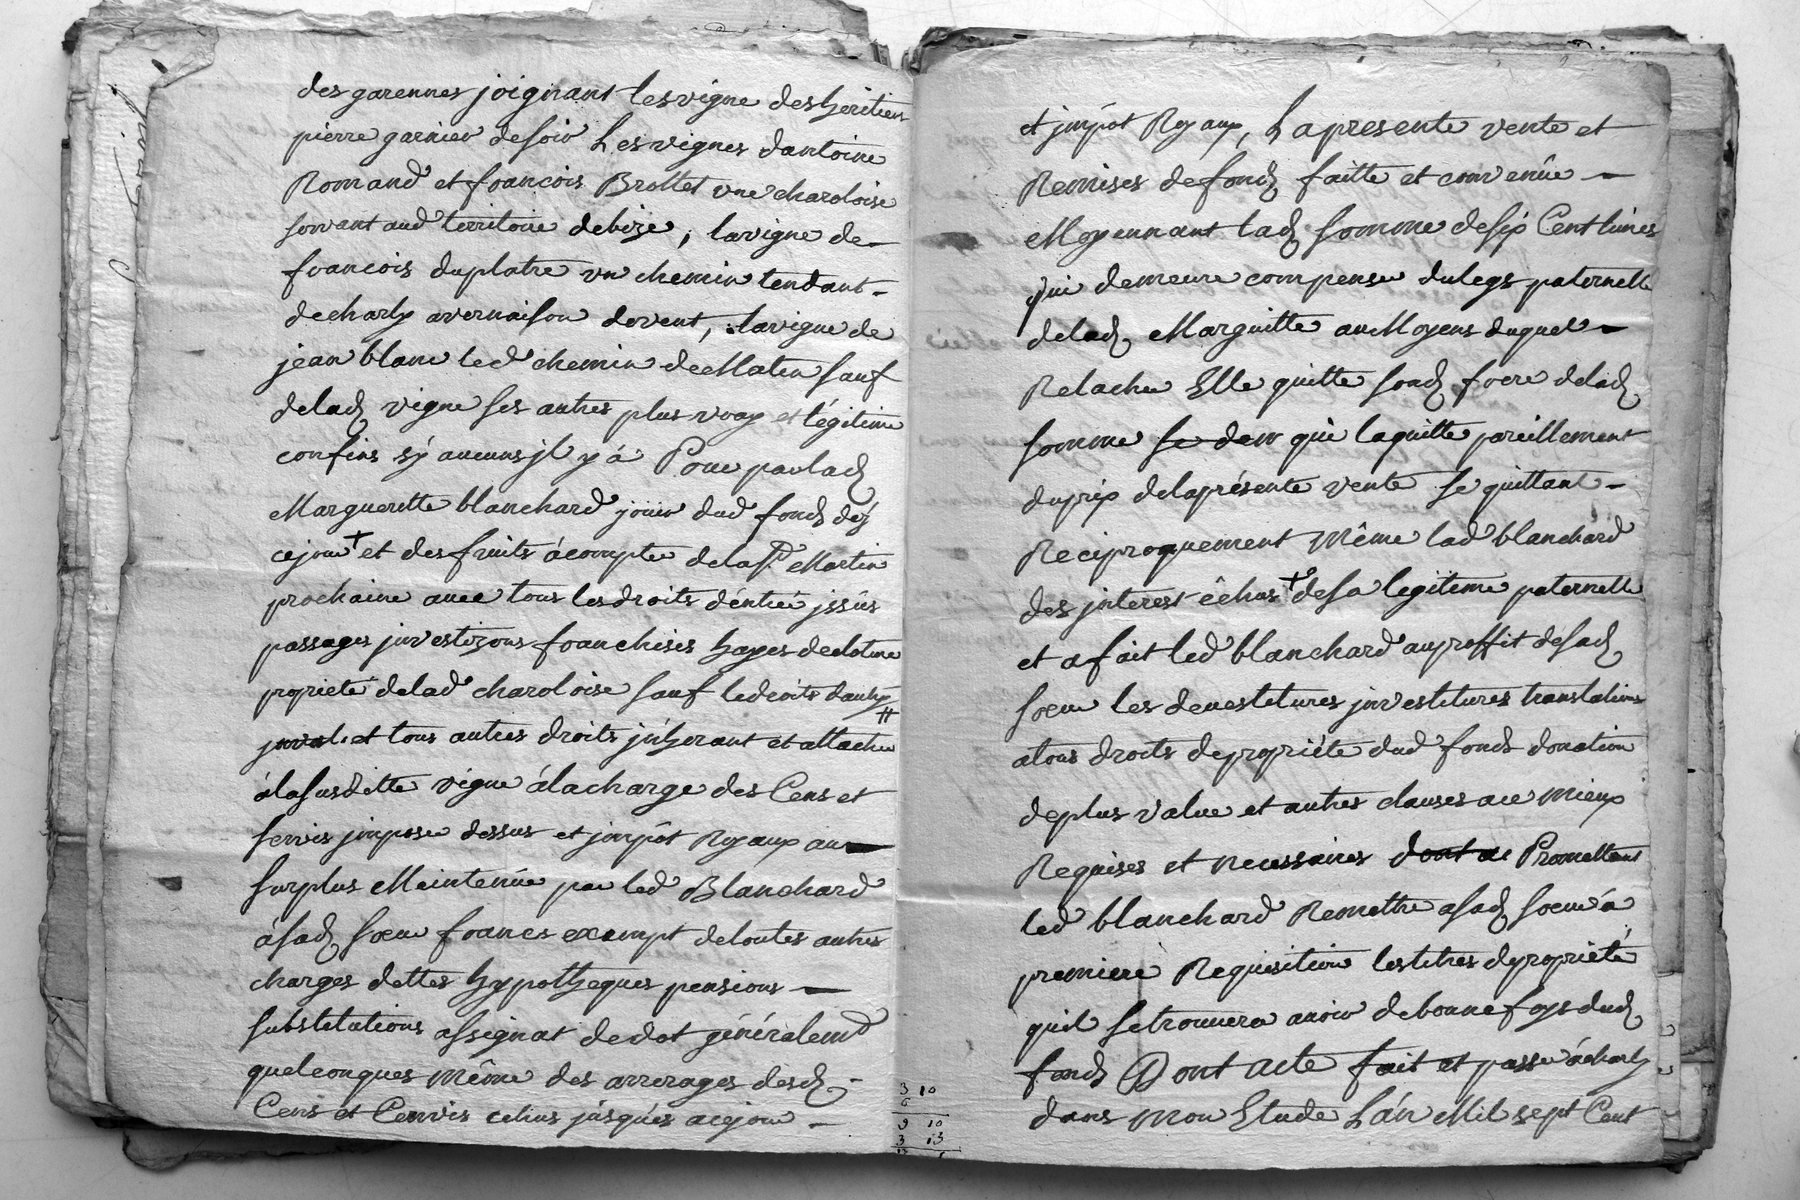 des garennes joignant les vigne des heritiers
pierre garnier de soir Les vignes dantoine
Romand et francois Brottet une charoloise
servant aud territoire de bize, la vigne de
francois duplatre un chemin tendant
de charly a vernaison de vent, la vigne de
jean blanc led chemin de Matin sauf
de lad vigne ses autres plus vray et légitime
confins sý aucuns jl y á Pour par lad
Marguerette blanchard joüir dud fonds déz
ce jour + et des fruits á compter de la St Martin
prochaine avec tous les droits déntréé jssüs
passages jnvestizons franchises hayes de cloture
proprieté de lad charoloise sauf le droits dauly
et tous autres droits jnherant et attacher
á la susditte vigne á la charge des Cens et
servis jmposer dessus et jmpôt Royaux au
surplus Meintenüe par led Blanchard
á sad soeur francs exempt de toutes autres
charges dettes hypotheques pensions
substitutions assignat de dot généralemt
quelconques même des arrerages desd
Cens et Cervis echus júsqués a ce jour
3 10
6
9 10
3 13
et jmpót Royaux, La presente vente et
Remises de fonds faitte et convenüe
Moyennant lad somme de six Cent livres
qui demeure compenser du legs paternelle
de lad Marguitte au Moyens du quel
Relacher Elle quitte sond frere de lad
somme se dem qui la quitte pareillement
du prix de la présente vente se quittant
Reciproquement Même lad blanchard
des jnterest êchus + de sa legitime paternelle
et a fait led blanchard au proffit de sad
soeur les devestitures jnvestitures translations
a tous droits de propriéte dud fonds donation
de plus value et autres clauses au mieux
Requises et necessaires dont ac Promettant
led blanchard Remettre a sad soeur á
premiere Requisition les titres de proprieté
quil se trouvera avoir de bonne foys dud
fonds Dont acte fait et passer á charly
dans mon Etude Lán Mil sept Cent